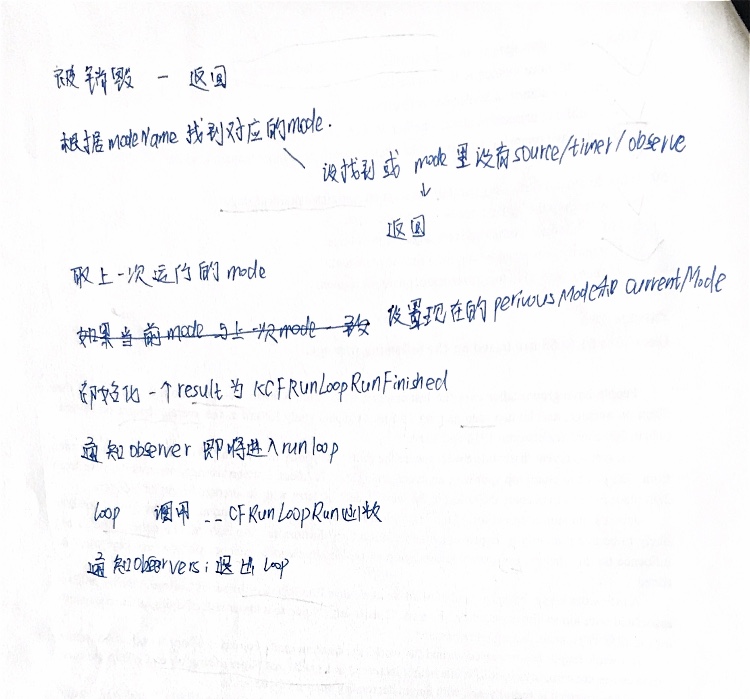 被销毁 — 返回
根据modeName找到对应的mode.
没找到或 mode里没有source/timer/observe
↓
返回
取上一次运行的mode
如果当前mode与上一次mode一致 设置现在的perivousMode和currentMode
初始化一个result为KCFRunLoopRunFinished
通知observer 即将进入runloop
loop 调用 __CFRunLoopRun函数
通知Observers:退出loop